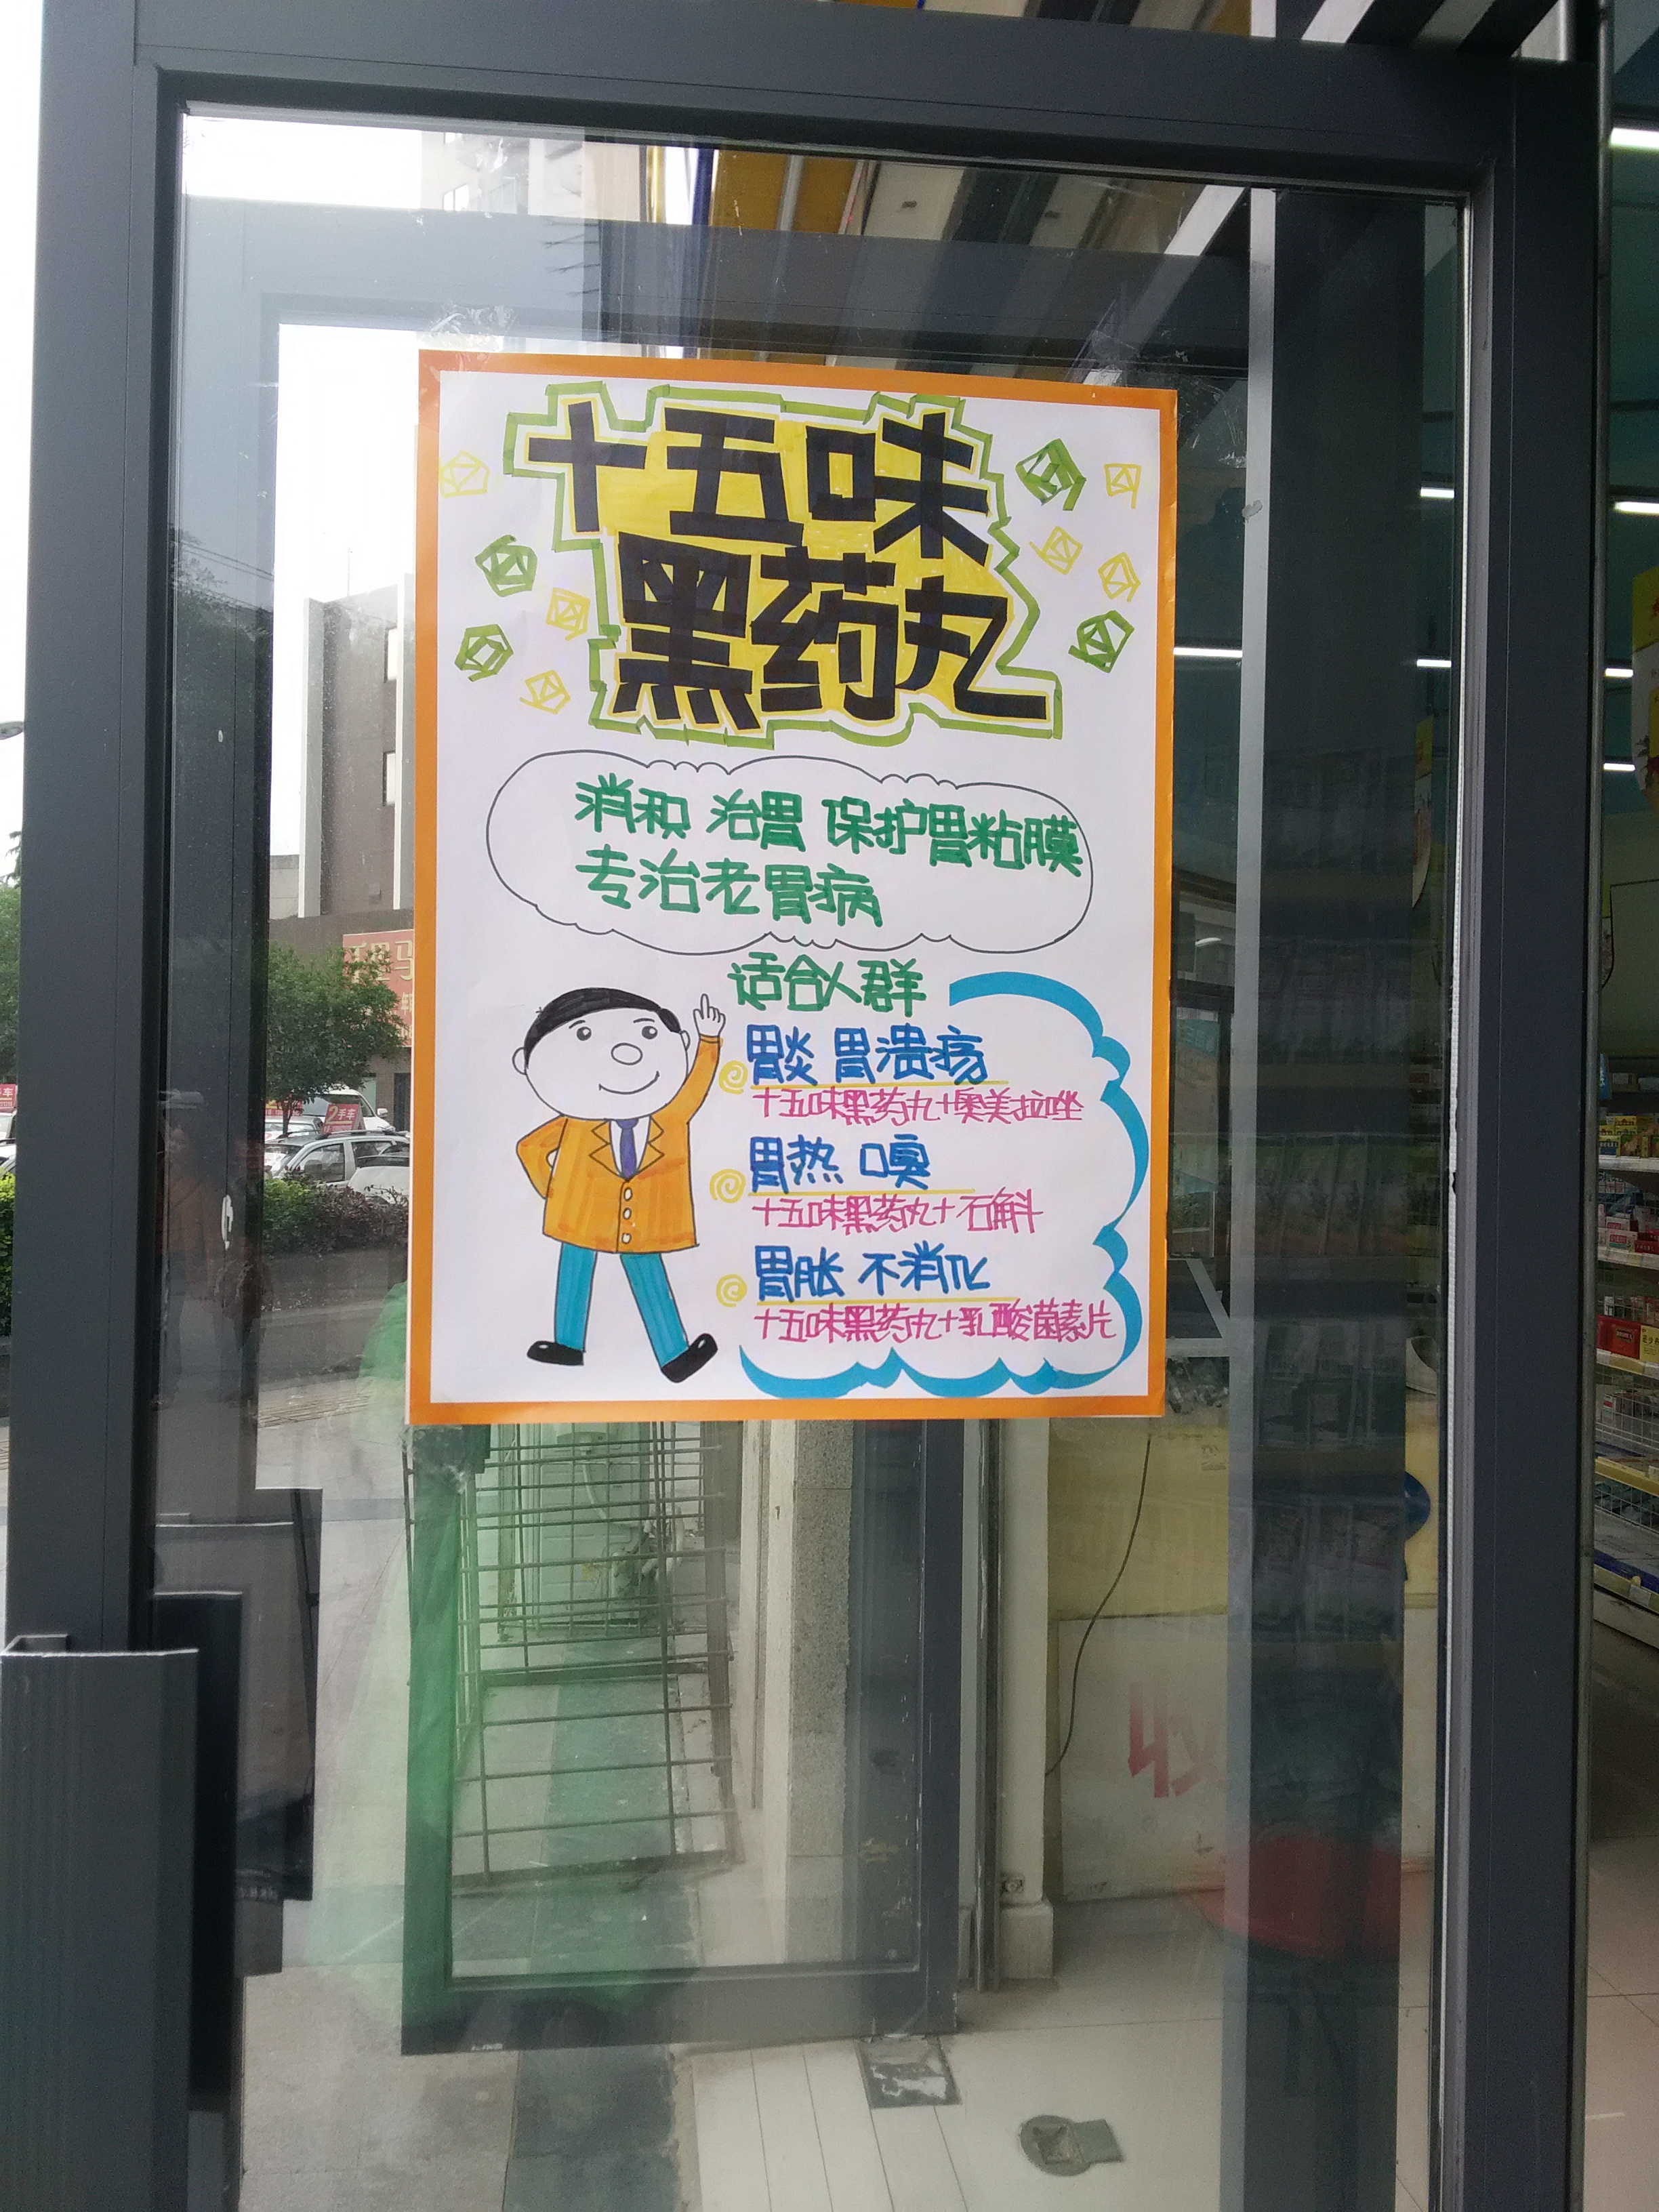 十五味
黑药丸
消积 治胃 保护胃粘膜
专治老胃病
适合人群
胃炎 胃溃疡
十五味黑药丸+奥美拉唑
胃热 口臭
十五味黑药丸+石斛
胃胀 不消化
十五味黑药丸+乳酸菌素片
手车
收